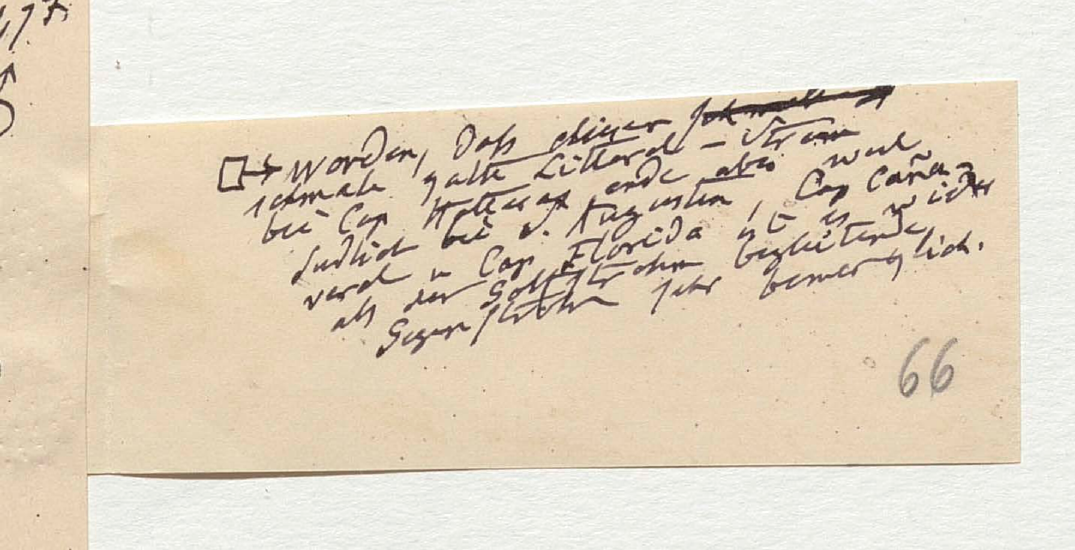 worden, daß dieser
schmale kalte Littoral-Strom
bei Cap Hatteras ende aber weil
südlich bei S. Augustin, Cap Cañaveral
u Cap Florida ist es wieder
als der Golfstrohm begleitende
Gegenstrohm sehr bemerklich.
66